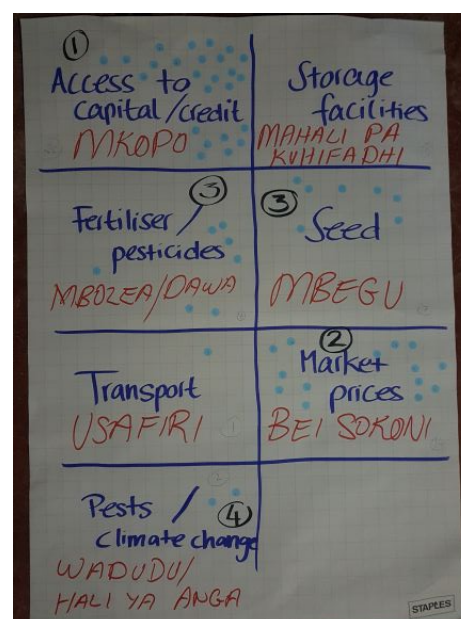 1
Access to
capital/credit
MKOPO
Storage
facilities
MAHALI PA
KUHIFADHI
3
Fertiliser/
pesticides
MBOZEA/DAWA
3
Seed
MBEGU
Transport
USAFIRI
2
Market
prices
BEI SOKONI
Pests /
4
climate change
WADUDU/
HALI YA ANGA
STAPLES